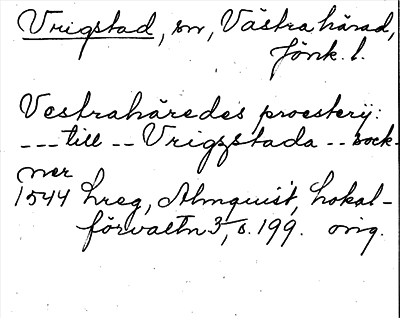 Vrigstad, sn, Västra härad,
Jönk. l.
Vestrahäredes proesterij:
--- till -- Vrigzstada -- sock-
ner
1544 hreg, Almquist, Lokal-
förvaltn 3, s. 199. orig.